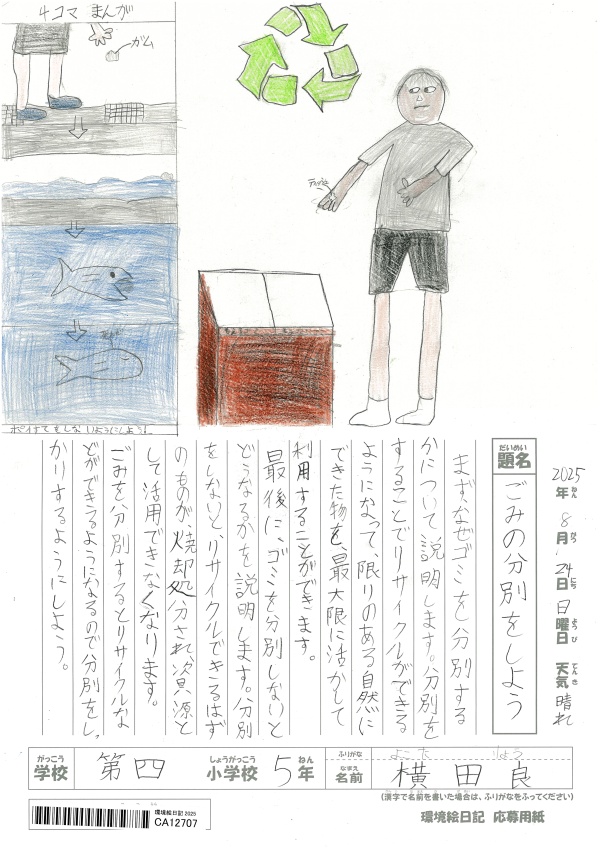 4コマ まんが
ガム
ポイすてをしないようにしよう!
2025年ねん 8月がつ 24日にち 日曜日ようび 天気てんき 晴れ
題名だいめい
ごみの分別をしよう
まず、なぜゴミを分別する
かについて説明します。分別を
することでリサイクルができる
ようになって、限りのある自然に
できた物を、最大限に活かして
利用することができます。
最後に、ゴミを分別しないと
どうなるかを説明します。分別
をしないと、リサイクルできるはず
のものが、焼却処分され資源と
して活用できなくなります。
ごみを分別するとリサイクルな
どができるようになるので分別をしっ
かりするようにしよう。
がっこう 学校 第四 しょうがっこう 小学校 5 ねん 年
ふりがな よこた りょう
なまえ 名前 横田良
(漢字で名前を書いた場合は、ふりがなをふってください)
環境絵日記 2025
CA12707
環境絵日記 応募用紙